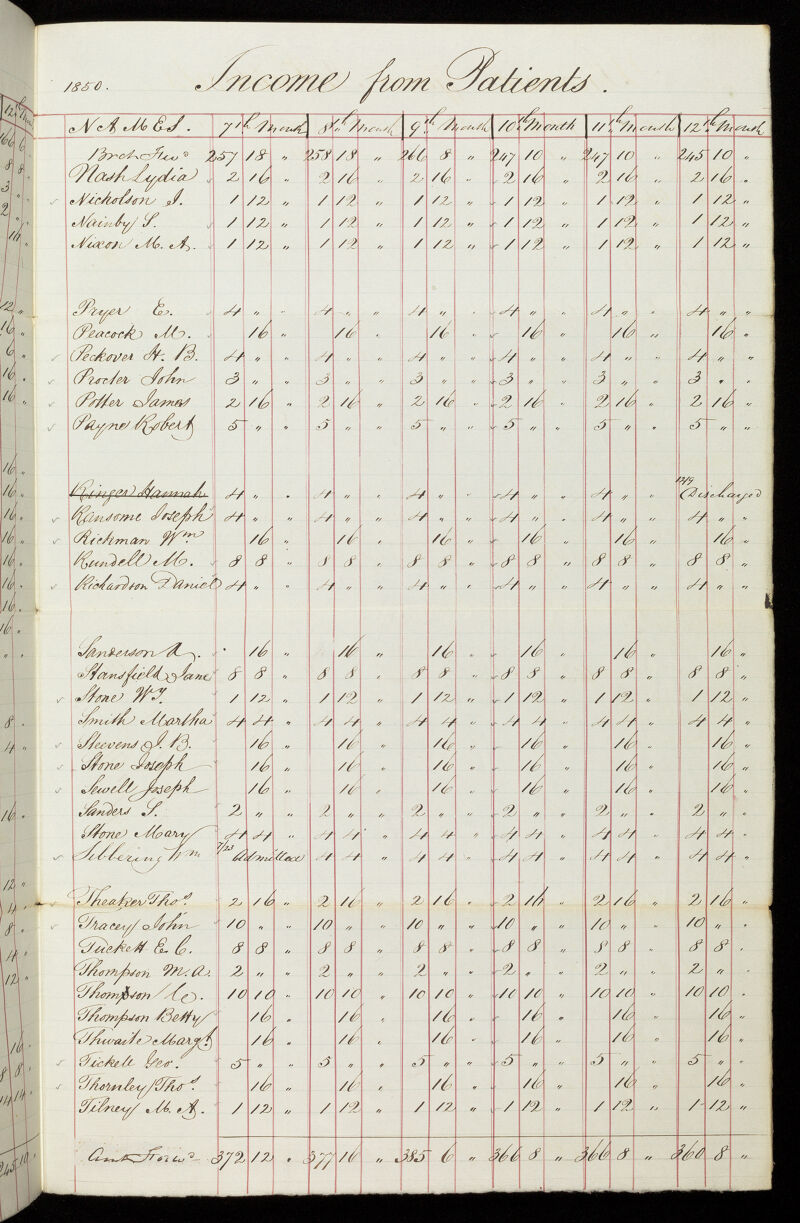 1850. Income from Patients.
NAMES. 7th Month 8th Month 9th Month 10th Month 11th Month 12th Month
Brot Forwd 257 18 " 258 18 " 266 8 " 247 10 " 247 10 " 245 10 "
Nash Lydia 2 16 " 2 16 " 2 16 " 2 16 " 2 16 " 2 16 "
Nicholson J. 1 12 " 1 12 " 1 12 " 1 12 " 1 12 " 1 12 "
Nainby S. 1 12 " 1 12 " 1 12 " 1 12 " 1 12 " 1 12 "
Nixon M. A. 1 12 " 1 12 " 1 12 " 1 12 " 1 12 " 1 12 "
Pryer E. 4 " " 4 " " 4 " " 4 " " 4 " " 4 " "
Peacock M. 16 " 16 " 16 " 16 " 16 " 16 "
Peckover H. B. 4 " " 4 " " 4 " " 4 " " 4 " " 4 " "
Procter John 3 " " 3 " " 3 " " 3 " " 3 " " 3 " "
Potter James 2 16 " 2 16 " 2 16 " 2 16 " 2 16 " 2 16 "
Payne Robert 5 " " 5 " " 5 " " 5 " " 5 " " 5 " "
Ringer Hannah 4 " " 4 " " 4 " " 4 " " 4 " " 12/9 Discharged
Ransome Joseph 4 " " 4 " " 4 " " 4 " " 4 " " 4 " "
Richman Wm 16 " 16 " 16 " 16 " 16 " 16 "
Rundell M. 8 8 " 8 8 " 8 8 " 8 8 " 8 8 " 8 8 "
Richardson Daniel 4 " " 4 " " 4 " " 4 " " 4 " " 4 " "
Sanderson A. 16 " 16 " 16 " 16 " 16 " 16 "
Stansfield Jane 8 8 " 8 8 " 8 8 " 8 8 " 8 8 " 8 8 "
Stone W. J. 1 12 " 1 12 " 1 12 " 1 12 " 1 12 " 1 12 "
Smith Martha 4 4 " 4 4 " 4 4 " 4 4 " 4 4 " 4 4 "
Steevens J. B. 16 " 16 " 16 " 16 " 16 " 16 "
Stone Joseph 16 " 16 " 16 " 16 " 16 " 16 "
Sewell Joseph 16 " 16 " 16 " 16 " 16 " 16 "
Sanders S. 2 " " 2 " " 2 " " 2 " " 2 " " 2 " "
Stone Mary 4 4 " 4 4 " 4 4 " 4 4 " 4 4 " 4 4 "
Sibbering Wm 7/23 Admitted 4 4 " 4 4 " 4 4 " 4 4 " 4 4 "
Theaker Thos 2 16 " 2 16 " 2 16 " 2 16 " 2 16 " 2 16 "
Tracey John 10 " " 10 " " 10 " " 10 " " 10 " " 10 " "
Tuckett E. C. 8 8 " 8 8 " 8 8 " 8 8 " 8 8 " 8 8 "
Thompson M. A. 2 " " 2 " " 2 " " 2 " " 2 " " 2 " "
Thompson C. 10 10 " 10 10 " 10 10 " 10 10 " 10 10 " 10 10 "
Thompson Betty 16 " 16 " 16 " 16 " 16 " 16 "
Thwaite Margt 16 " 16 " 16 " 16 " 16 " 16 "
Tickell Geo. 5 " " 5 " " 5 " " 5 " " 5 " " 5 " "
Thornley Thos 16 " 16 " 16 " 16 " 16 " 16 "
Tilney M. A. 1 12 " 1 12 " 1 12 " 1 12 " 1 12 " 1 12 "
Amt Forwd 372 12 " 377 16 " 385 6 " 366 8 " 366 8 " 360 8 "